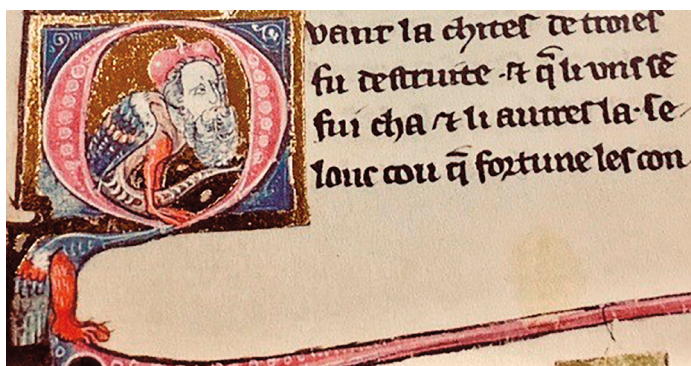 Qvant la chites de troies
fu destruite ⁊ q̃ li vns sẽ
fui cha ⁊ li autres la. se
lonc cou q̃ fortune les con